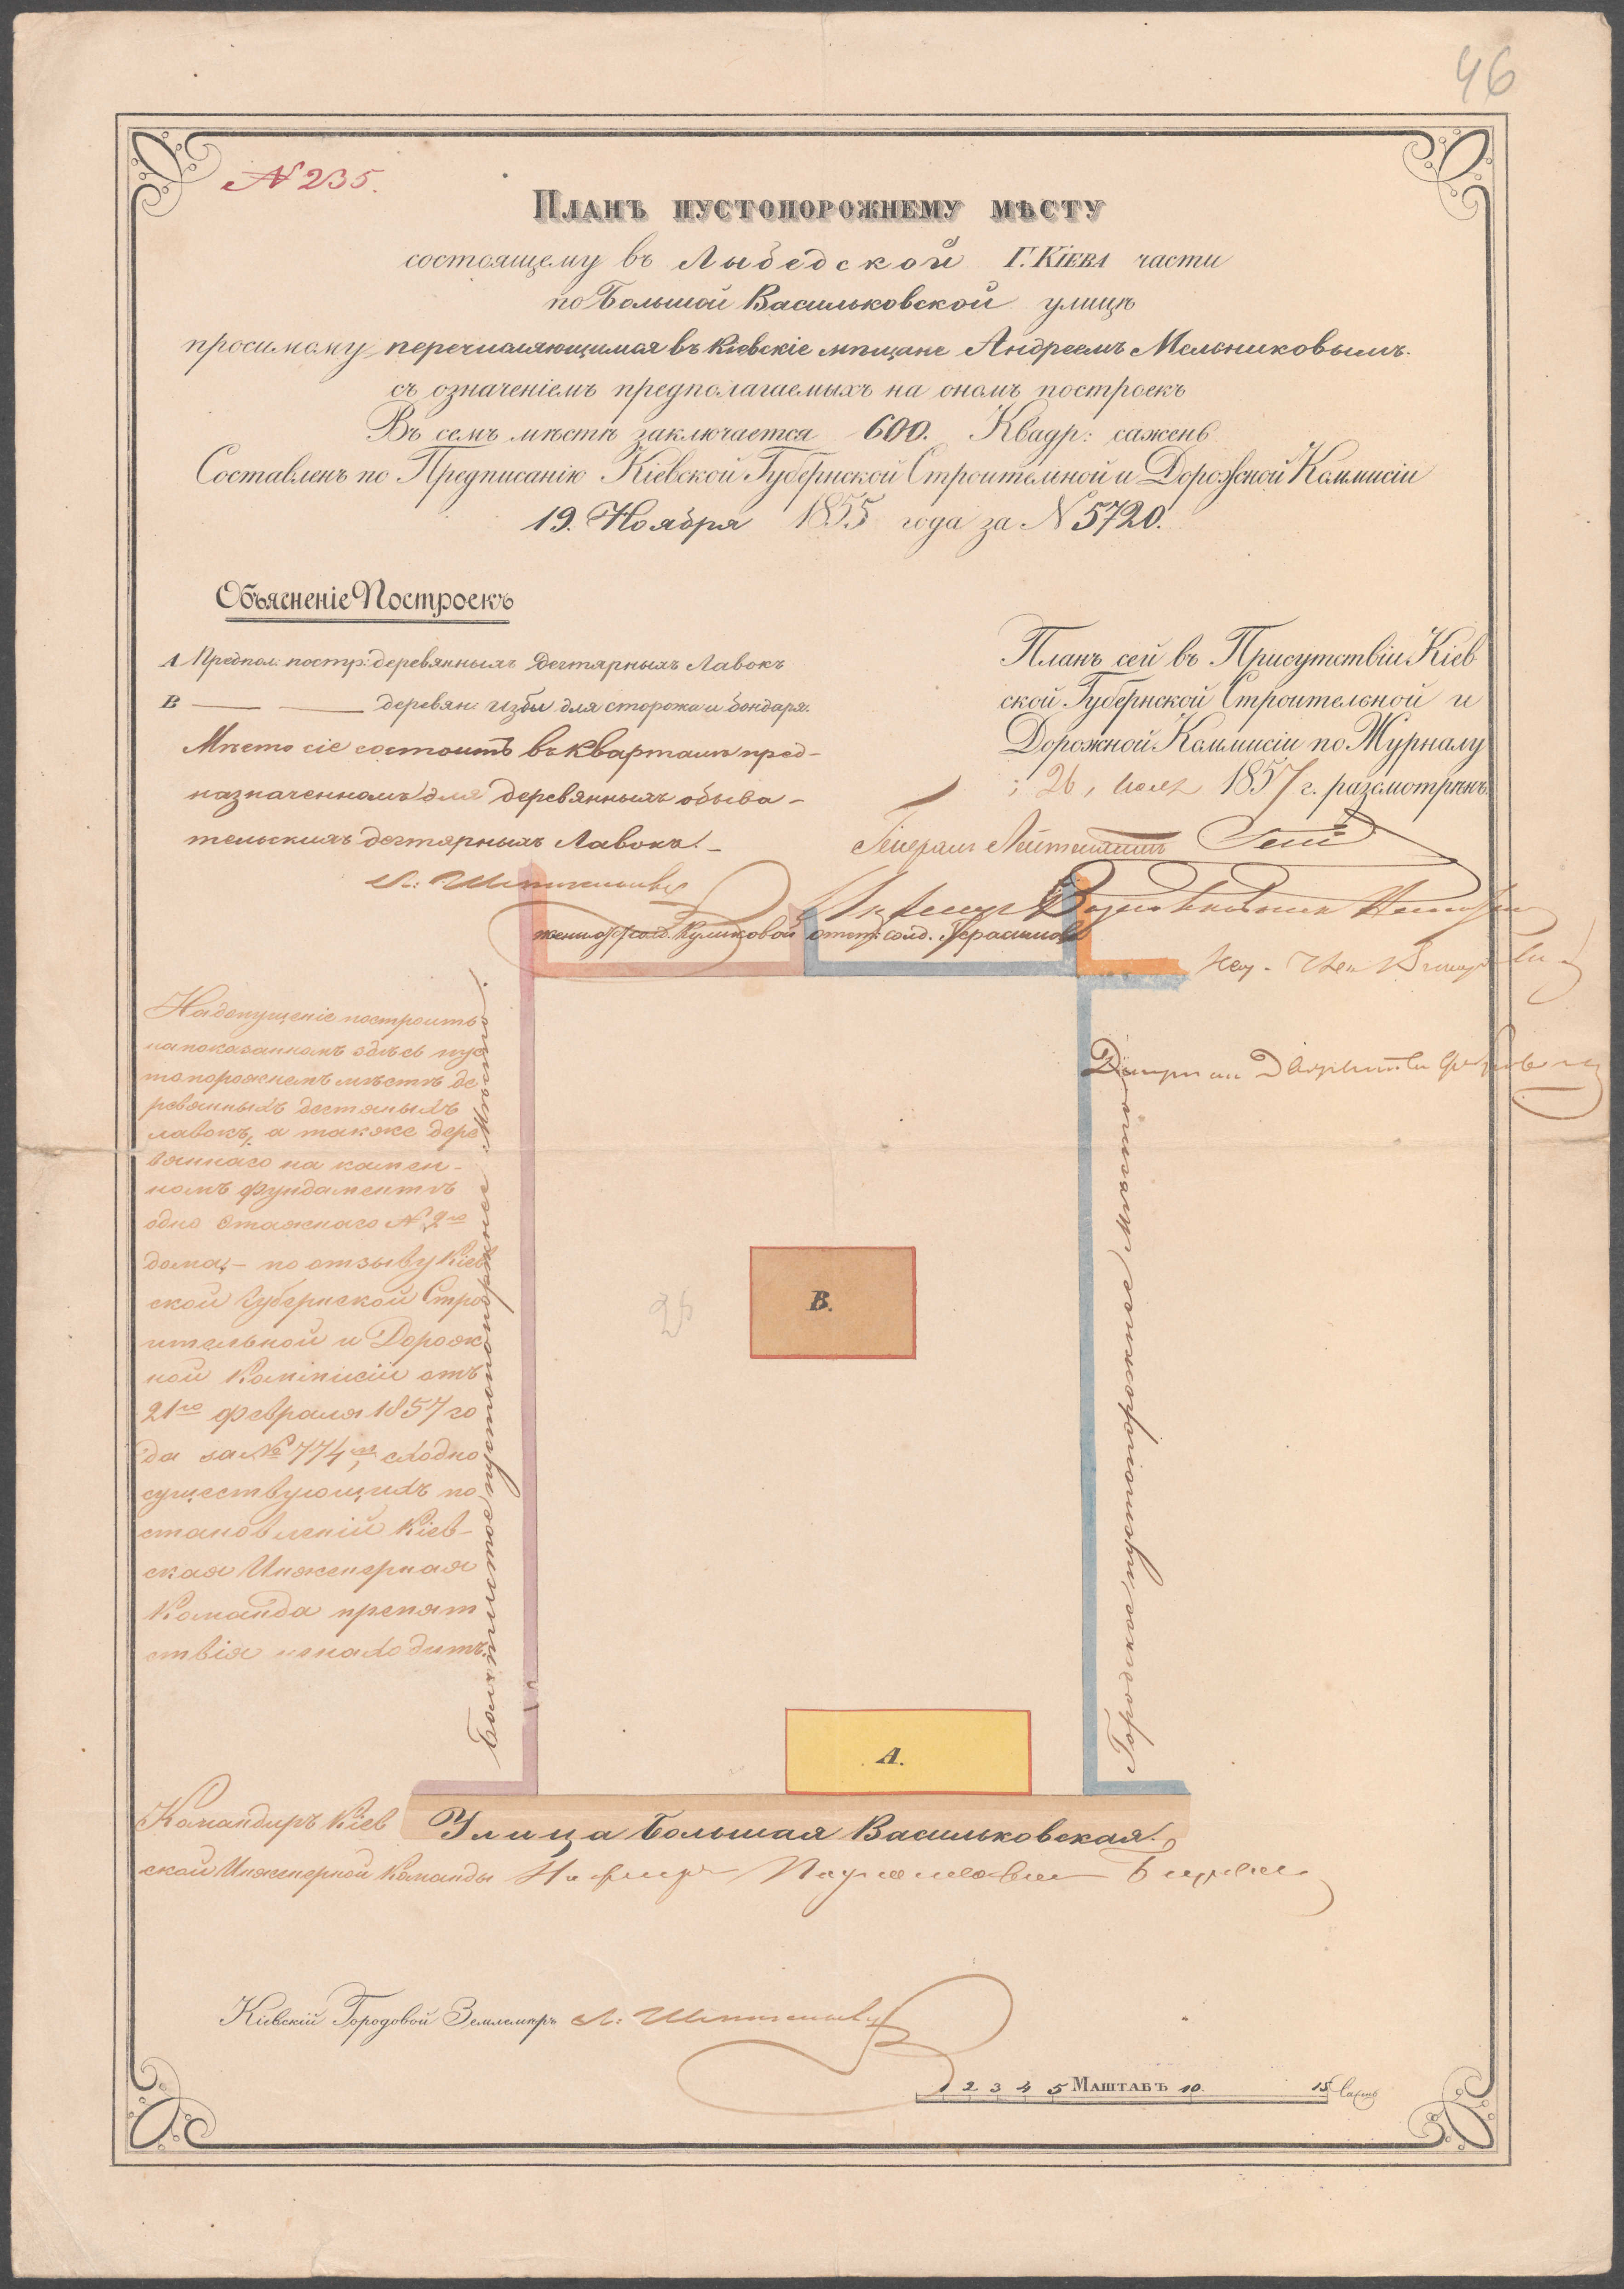 46
N 235.
Планъ пустопорожнему мѣсту
состоящему въ Лыбедской Г. Кіева части
по Большой Васильковской улицѣ
просимому перечисляющимся въ Кіевскіе мѣщане Андреемъ Мельниковымъ.
съ означеніемъ предполагаемыхъ на ономъ построекъ
Въ семъ мѣстѣ заключается 600. Квадр: сажень
Составленъ по Предписанію Кіевской Губернской Строительной и Дорожной Коммисіи
19. Ноября 1855 года за N 5720.
Объясненіе Построекъ
А Предпол: постр: деревянныхъ Дегтярныхъ Лавокъ
В — — деревян: избы для сторожа и бондаря.
Мѣсто сіе состоитъ въ Кварталѣ пред-
назначенномъ для деревянныхъ обыва-
тельскихъ дегтярныхъ Лавокъ.
Планъ сей въ Присутствіи Кіев
ской Губернской Строительной и
Дорожной Коммисіи по Журналу
26, 1857 г. разсмотрѣнъ.
Генералъ Лейтенантъ
жены солд. Куликовой
отст: солд. Герасимова
На допущеніе построить
на показанномъ здѣсь пус
топорожнемъ мѣстѣ де
ревянныхъ дегтяныхъ
лавокъ, а также дере
вяннаго на камен-
номъ фундаментѣ
одно этажнаго N 2го
дома, – по отзыву Кіев
ской Губернской Стро
ительной и Дорож
ной Коммисіи отъ
21го февраля 1857 го
да за № 774м, сходно
существующихъ по
становленій Кіев-
ская Инженерная
Команда препят
ствія не находитъ.
Болотистое пустопорожнее Мѣсто.
Городское пустопорожнее Мѣсто
25
В.
А.
Улица Большая Васильковская.
Командиръ Кіев
ской Инженерной Команды
Кіевскій Городовой Землемѣръ
1 2 3 4 5 Маштабъ 10. 15 саж